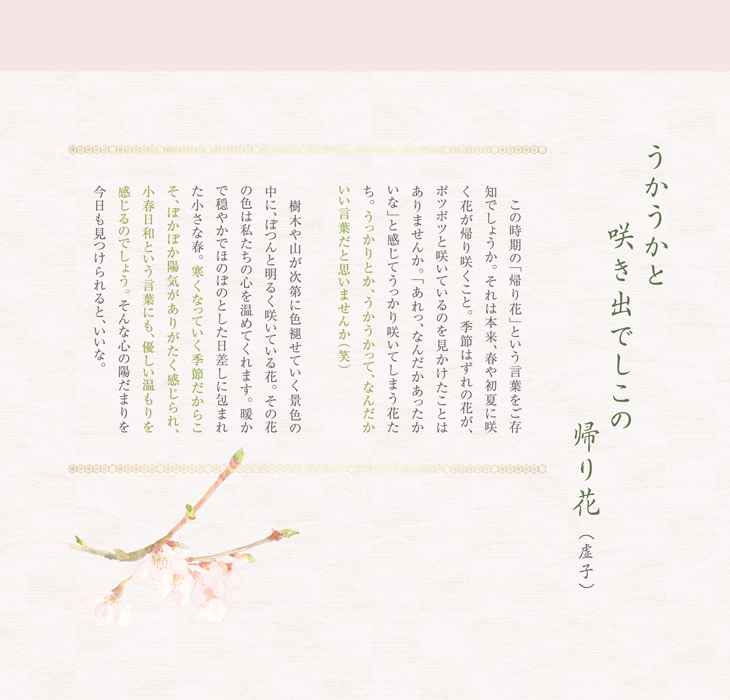 うかうかと
咲き出でしこの
帰り花（虚子）
この時期の「帰り花」という言葉をご存
知でしょうか。それは本来、春や初夏に咲
く花が帰り咲くこと。季節はずれの花が、
ポツポツと咲いているのを見かけたことは
ありませんか。「あれっ、なんだかあったか
いな」と感じてうっかり咲いてしまう花た
ち。うっかりとか、うかうかって、なんだか
いい言葉だと思いませんか（笑）
樹木や山が次第に色褪せていく景色の
中に、ぽつんと明るく咲いている花。その花
の色は私たちの心を温めてくれます。暖か
で穏やかでほのぼのとした日差しに包まれ
た小さな春。寒くなっていく季節だからこ
そ、ぽかぽか陽気がありがたく感じられ、
小春日和という言葉にも、優しい温もりを
感じるのでしょう。そんな心の陽だまりを
今日も見つけられると、いいな。